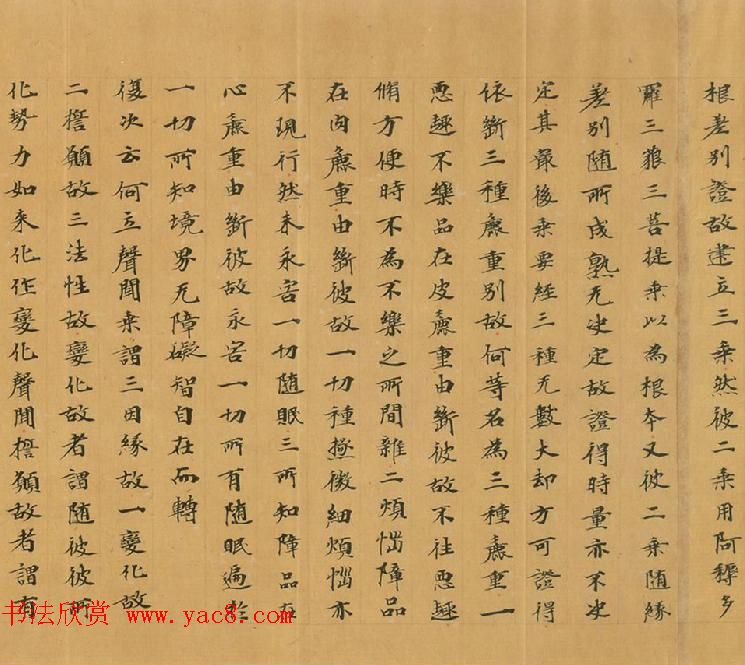 根差別證故建立三乘然彼二乘用阿耨多
羅三藐三菩提乘以為根本又彼二乘隨緣
差別隨所成熟无決定故證得時量亦不決
定其最後乘要經三種无數大劫方可證得
依斷三種麁重別故何等名為三種麁重一
惡趣不樂品在皮麁重由斷彼故不往惡趣
脩方便時不為不樂之所間雜二煩惱障品
在肉麁重由斷彼故一切種極微細煩惱亦
不現行然未永害一切隨眠三所知障品在
心麁重由斷彼故永害一切所有隨眠遍於
一切所知境界无障礙智自在而轉
復次云何立聲聞乘謂三因緣故一變化故
二誓願故三法性故變化故者謂隨彼彼所
化勢力如來化作變化聲聞誓願故者謂有
书法欣赏 www.yac8.com